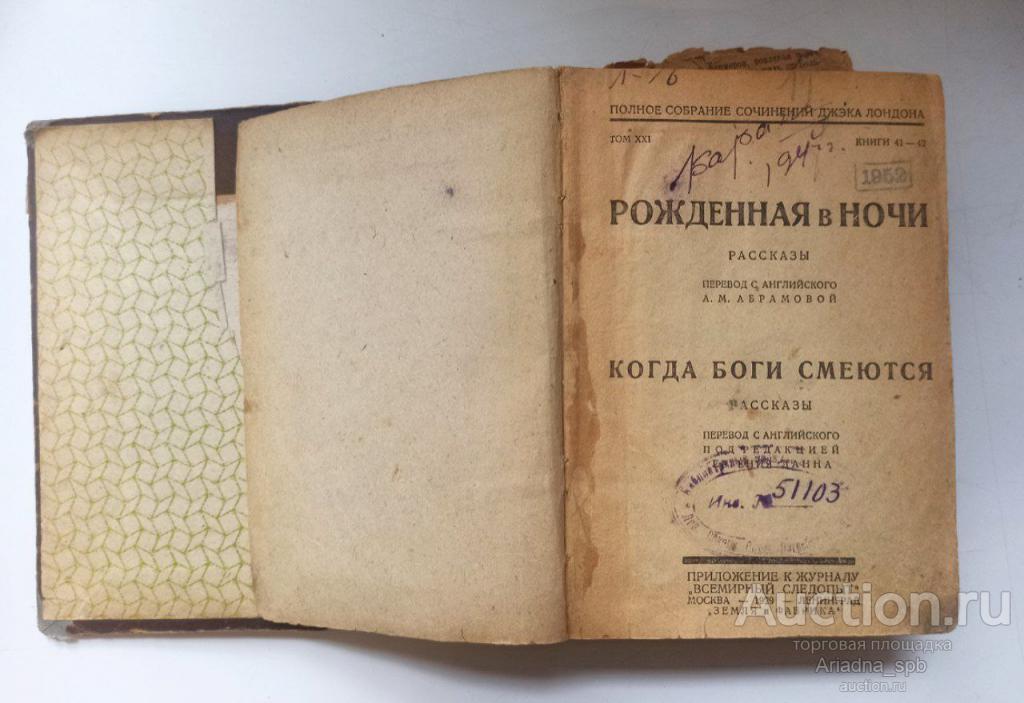 Л-76
ПОЛНОЕ СОБРАНИЕ СОЧИНЕНИЙ ДЖЭКА ЛОНДОНА
ТОМ XXI
КНИГИ 41—42
1952
РОЖДЕННАЯ В НОЧИ
РАССКАЗЫ
ПЕРЕВОД С АНГЛИЙСКОГО
А. М. АБРАМОВОЙ
КОГДА БОГИ СМЕЮТСЯ
РАССКАЗЫ
ПЕРЕВОД С АНГЛИЙСКОГО
ПОД РЕДАКЦИЕЙ
ЕВГЕНИЯ ЛАННА
Инв. № 51103
ПРИЛОЖЕНИЕ К ЖУРНАЛУ
„ВСЕМИРНЫЙ СЛЕДОПЫТ"
МОСКВА — 1929 — ЛЕНИНГРАД
„ЗЕМЛЯ и ФАБРИКА"
Auction.ru
торговая площадка
Ariadna_spb
auction.ru